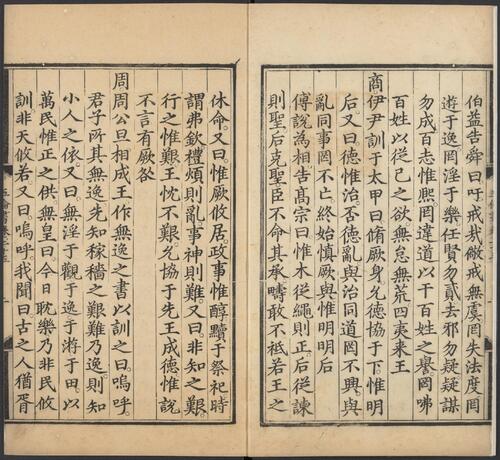 伯益告舜曰吁戒哉儆戒無虞罔失法度罔
遊于逸罔淫于樂任賢勿貳去邪勿疑疑謀
勿成百志惟熈罔違道以干百姓之譽罔咈
百姓以從己之欲無怠無荒四夷來王
商伊尹訓于太甲曰脩厥身允德協于下惟明
后又曰德惟治否德亂與治同道罔不興與
亂同事罔不亡終始慎厥與惟明明后
傅說為相告髙宗曰惟木從繩則正后從諫
則聖后克聖臣不命其承疇敢不祗若王之
休命又曰惟厥攸居政事惟醇黷于祭祀時
謂弗欽禮煩則亂事神則難又曰非知之艱
行之惟艱王忱不艱允協于先王成德惟說
不言有厥咎
周周公旦相成王作無逸之書以訓之曰嗚呼
君子所其無逸先知稼穡之艱難乃逸則知
小人之依又曰無淫于觀于逸于遊于田以
萬民惟正之供無皇曰今日耽樂乃非民攸
訓非天攸若又曰嗚呼我聞曰古之人猶胥